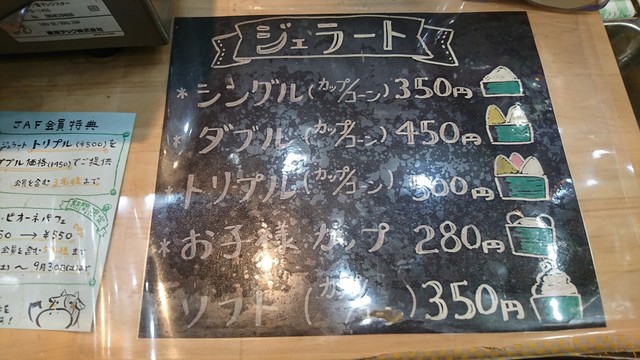 ジェラート
*シングル(カップ/コーン)350円
*ダブル(カップ/コーン)450円
*トリプル(カップ/コーン)500円
*お子様カップ 280円
ソフト( )350円
JAF会員特典
トリプル(¥500)を
ダブル価格(¥450)でご提供
会員を含む
ピオーネパフェ
→ ¥550
会員を含む
~ 9月30日